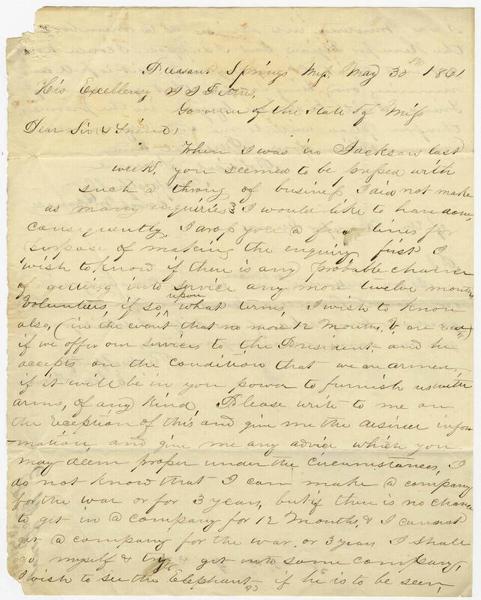 Pleasant Springs Miss May 30th 1861
His Excellency J J Pettus,
Governor of the State of Miss
Dear Sir & Friend,
When I was in Jackson last
week, you seemed to be pressed with
such a throng of business I did not make
as many enquiries as I would like to have done,
consequently I drop you a few lines for
purpose of making the enquiry first I
wish to know if there is any probable chance
of getting into service any more twelve months
volunteers, if so, upon what terms, I wish to know
also, (in the event that no more 12 months, V. are
if we offer our services to the President and he
accepts on the condition that we are armed,
if it will be in your power to furnish us with
arms, of any kind, Please write to me on
the reception of this, and give me the desired infor-
mation, and give me any advice which you
may deem proper under the circumstances, I
do not know that I can make a company
for the war or for 3 years, but if there is no chance
to get in a company for 12 months, & I cannot
get a company for the war or 3 years I shall
go, myself & try & get into some company,
I wish to see the Elephant, if he is to be seen,